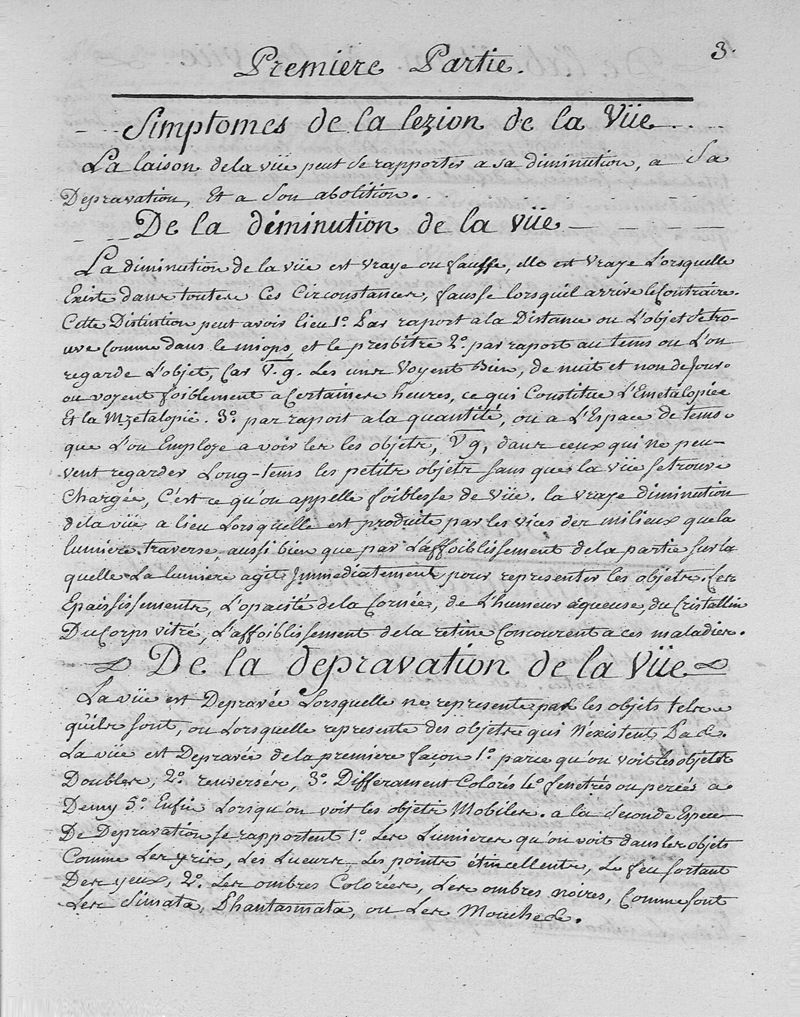 3.
Premiere Partie.
Simptomes de la lezion de la Vüe
La laison dela vüe peut se rapporter a sa diminution, a Sa
Depravation, Et a Son abolition.
De la diminution de la vüe
La diminution de la vüe est vraye ou fausse, elle est vraye Lorsquelle
Existe dans toutes Ces Circonstances, fausse lorsquil arrive le Contraire.
Cette Distinstion peut avoir lieu 1º. Par raport a la Distance ou L'objet se tro-
uve Comme dans le miops, et le presbitre 2º. par raport au tems ou L'on
regarde L'objet, Car V. g. Les uns Voyent Bien, de nuit et non de Jour.
ou voyent foiblement a Certaines heures, ce qui Constitue L'Emetalopiee
Et la Mzetalopié. 3º. par rapport a la quantité, ou a L'Espace de tems
que L'on Employe a voir les les objets, V g, dans ceux qui ne peu-
vent regarder Long-tems les petits objets sans que la vüe se trouve
Chargée, C'est ce qu'on appelle foiblesse de Vüe. la vraye diminution
dela vüe a lieu Lorsquelle est produite par les vices des milieux que la
lumiere traverse, aussi bien que par L'affoiblissement dela partie sur la
quelle La lumiere agit Immediatement pour representer les objets. Ces
Epaississements, L'opacité dela Cornée, de L'humeur aqueuse, du Cristallin
Du Corps vitré, L'affoiblissement dela retine Concourent a ces maladies.
De la depravation de la Vüe
La vüe est Depravée Lorsquelle ne represente pas les objets tels
qu'ils sont, ou Lorsquelle represente des objets qui N'existent Pas.
La vüe est Depravée dela premiere façon 1º. parce qu'on voit les objets
Doubles, 2º. renversés, 3º. Differament Colorés 4º. fenetrés ou percés a
Demy 5º. Enfin Lorsqu'on voit les objets Mobiles. a la Seconde Espece
De Depravation se rapportent 1º. Les Lumieres qu'on voit dans les objets
Comme Les yris, Les Lueurs Les points étincellents, Le feu sortant
Des yeux, 2º. Les ombres Colorées, Les ombres noires, Comme sont
Les Simata, Phantasmata, ou Les Mouches.